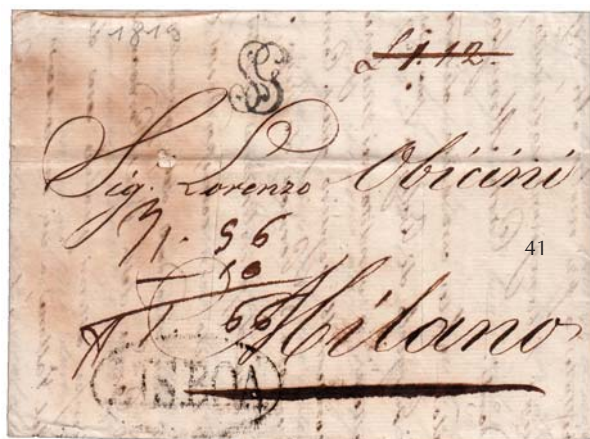 1813
£ 1.12.
Sig. Lorenzo Obicini
56
10
41
66
Milano
LISBOA